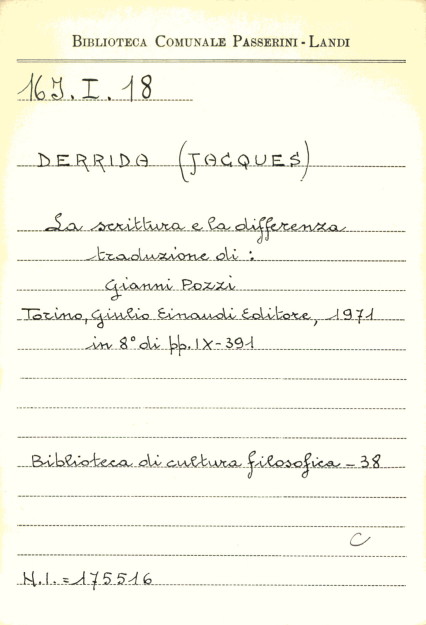 BIBLIOTECA COMUNALE PASSERINI - LANDI
16J.I.18
DERRIDA (JACQUES)
La scrittura e la differenza
traduzione di :
Gianni Pozzi
Torino, Giulio Einaudi Editore, 1971
in 8° di pp. IX-391
Biblioteca di cultura filosofica - 38
C
N.I. = 175516